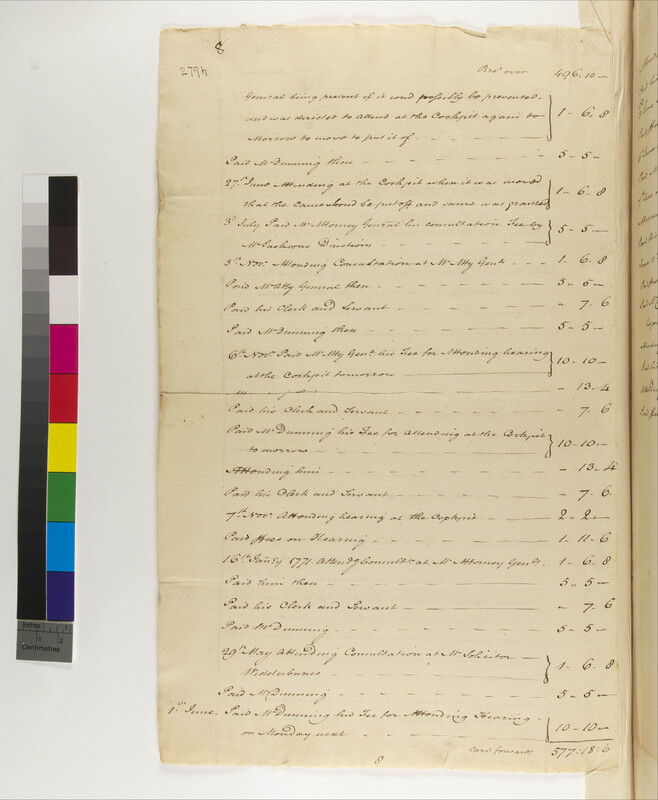 8
279h
Bro.t over 496.10 —
General being present if it could possibly be prevented.
and was directed to attend at the Cockpit again to
Morrow to move to put it of — 1 - 6. 8
Paid Mr Dunning then — 5 - 5 -
27th June Attending at the Cockpit when it was moved
that the cause should be put off and same was granted 1 - 6 - 8
3d July Paid Mr Attorney General his consultation Fee by
Mr Jacksons Direction — 5 - 5 —
5th Novr. Attending Consultation at Mr Atty Genls - - - 1 - 6. 8
Paid Mr Atty General then — 5 " 5 -
Paid his Clerk and Servant — " 7. 6
Paid Mr Dunning then — 5 - 5 -
6th Novr. Paid Mr Atty Genl. his Fee for Attending hearing
at the Cockpit tomorrow — 10 - 10 -
- 13. 4
Paid his Clerk and Servant - - - " 7. 6
Paid Mr Dunning his Fee for attending at the Cockpit
to morrow — 10 - 10 -
Attending him — - 13 - 4
Paid his Clerk and Servant — - 7 - 6
7th Novr. Attending hearing at the Cockpit — 2 " 2 -
Paid ffees on Hearing — 1 - 11 - 6
16th Janry 1771 Attendg Consultn. at Mr Attorney Genls. 1 - 6. 8
Paid him then — 5 " 5 -
Paid his Clerk and Servant — " 7. 6
Paid Mr Dunning — 5 - 5 -
29th May Attending Consultation at Mr Solicitor
Wedderburnes — 1 - 6. 8
Paid Mr Dunning — 5 - 5 -
1st June. Paid Mr Dunning his Fee for Attending Hearing -
on Monday next — 10 - 10 -
Card forwards 577 : 18 : 6
8
Inches
1 2
Centimetres